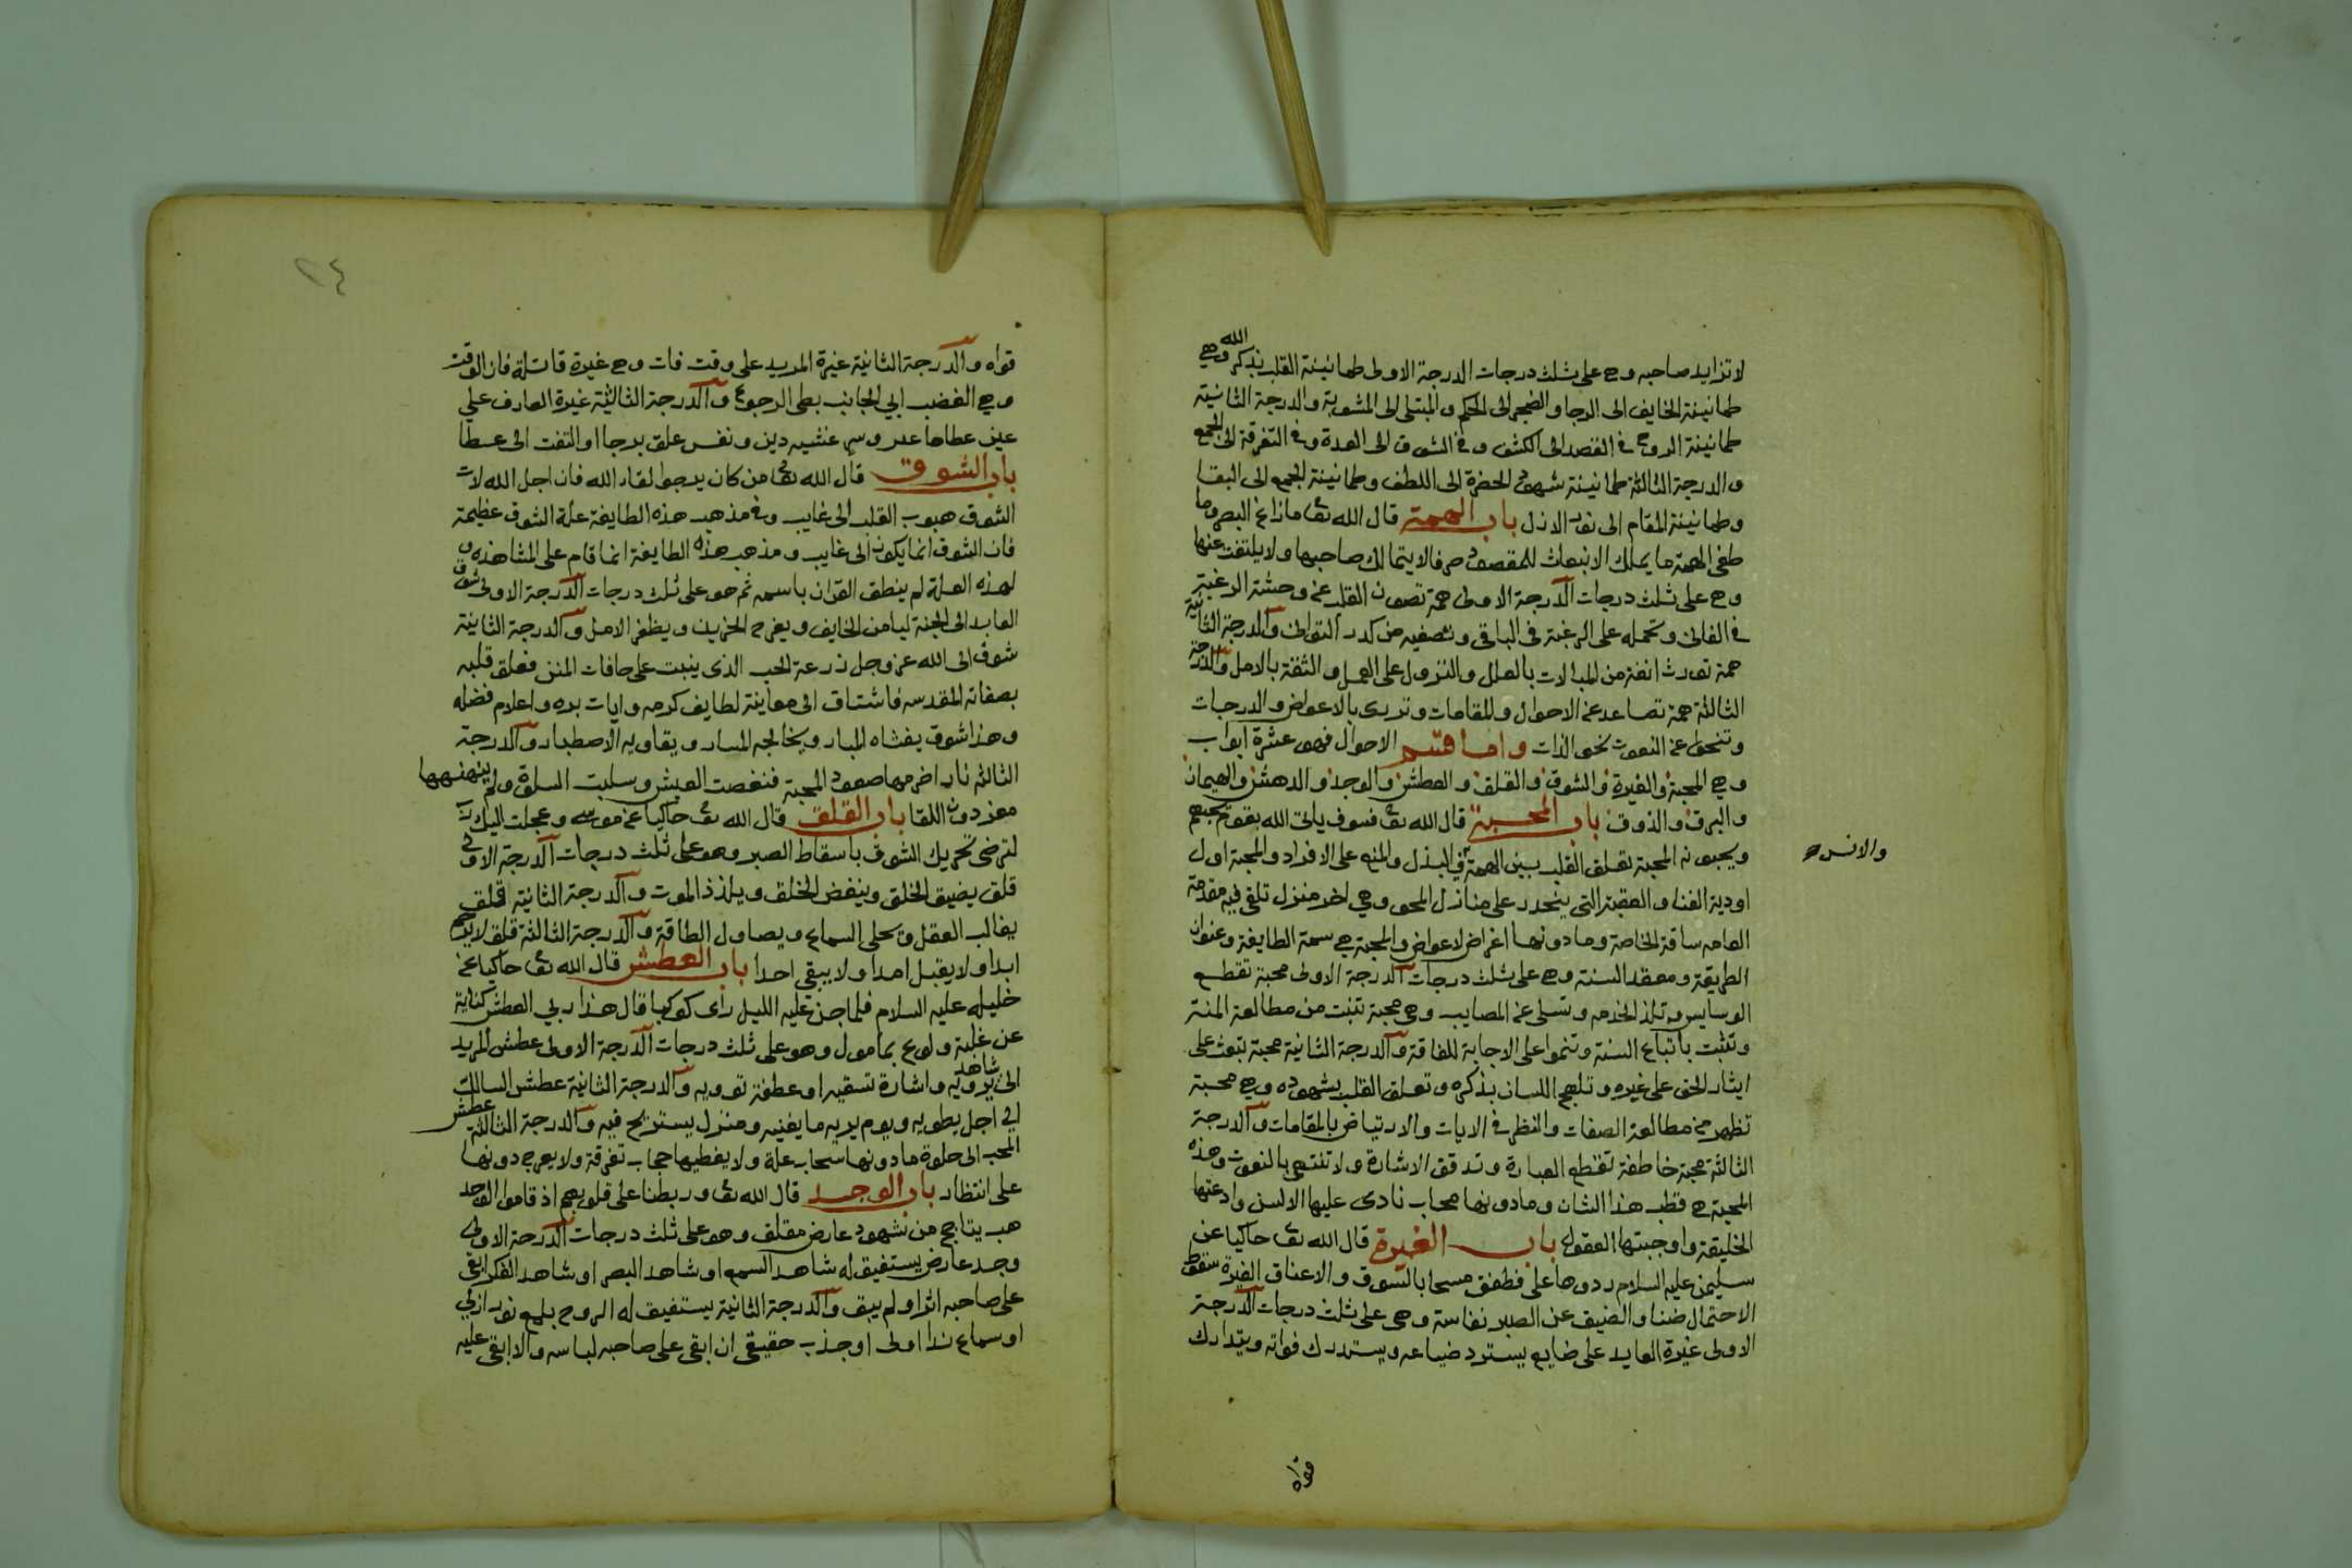 لا تزايد صاحبه وهي على ثلث درجات الدرجة الاولى طمانينة القلب بذكر الله وهي
طمانينة الخايف الى الرجا والضجر الى الحكم والمبتلى الى المثوبة والدرجة الثانية
طمانينة الروح في القصد الى الكشف وفي الشوق الى العدة وفي التفرقة الى الجمع
والدرجة الثالثة طمانينة شهود الحضرة الى اللطف وطمانينة الجمع الى البقا
وطمانينة المقام الى نور الازل باب الهمة قال الله تعا مازاغ البصر وما
طغى الهمة ما يملك الانبعاث للمقصود صرفا لا يتمالك صاحبها ولا يلتفت عنها
وهي على ثلث درجات الدرجة الاولى همة تصون القلب عن وحشة الرغبة
في الفانى وتحمله على الرغبة في الباقي وتصفيه من كدر التوانى والدرجة الثانية
همة تورث انفة من المبالات بالعلل والنزول على العمل والثقة بالامل والدرجة
الثالثة همة تصاعد عن الاحوال والمقامات وتزرى بالاعواض والدرجات
وتنحوا عن النعوت نحو الذات واما قسم الاحوال فهو عشرة ابواب
وهي المحبة والغيرة والشوق والقلق والعطش والوجد والدهش والهيمان
والبرق والذوق باب المحبة قال الله تعا فسوف ياتى الله بقوم يحبهم
ويحبونه المحبة تعلق القلب بين الهمة في البذل والمنع على الافراد والمحبة اول
والانس
اودية الفنا والعقبة التي ينحدر على منازل المحو وهي اخر منزل تلقى فيه مقدمة
العامه ساقة الخاصة وما دونها اغراض لاعواض والمحبة هي سمة الطايفة وعنوان
الطريقة ومعقد السنة وهي على ثلث درجات الدرجة الاولى محبة تقطع
الوساوس وتلذ الخدمه وتسلى عن المصايب وهي محبة تنبت من مطالعة المنة
وتثبت باتباع السنة وتنموا على الاجابة للفاقة والدرجة الثانية محبة تبعث على
ايثار الحق على غيره وتلهج اللسان بذكره وتعلق القلب بشهوده وهي محبة
تظهر من مطالعة الصفات والنظر في الايات والارتياض بالمقامات والدرجة
الثالثة محبة خاطفة تقطع العبارة وتدقق الاشارة ولا تنتهي بالنعوت وهذه
المحبة هي قطب هذا الشان وما دونها محاب نادى عليها الالسن وادعتها
الخليقة واوجبتها العقول باب الغيرة قال الله تعا حاكيا عن
سليمن عليه السلام ردوها على فطفق مسحا بالسوق والاعناق الغيرة سقوط
الاحتمال ضنا والضيق عن الصبر نفاسة وهي على ثلث درجات الدرجة
الاولى غيرة العابد على ضايع يسترد ضياعه ويستدرك فواته ويتدارك
قواه
٢٤
قواه والدرجة الثانية غيرة المريد على وقت فات وهي غيرة قاتلة فان الوقت
وحي الغضب ابي الجانب بطى الرجوع والدرجة الثالثة غيرة العارف على
عين غطاها غين وسر غشيه رين ونفس علق برجا او التفت الى عطا
باب الشوق قال الله تعا من كان يرجوا لقاء الله فان اجل الله لات
الشوق هبوب القلب الى غايب وفي مذهب هذه الطايفة علة الشوق عظيمة
فان الشوق انما يكون الى غايب ومذهب هذه الطايفة انما قام على المشاهده و
لهذه العلة لم ينطق القران باسمه ثم هو على ثلث درجات الدرجة الاولى شوق
العابد الى الجنة ليامن الخايف ويفرح الحزين ويظفر الامل والدرجة الثانية
شوق الى الله عز وجل زرعة الحب الذى ينبت على حافات المنن فعلق قلبه
بصفاته المقدسه فاشتاق الى معاينة لطايف كرمه وايات بره واعلام فضله
وهذا شوق يغشاه المبار ويخالجه المسار ويقاويه الاصطبار والدرجة
الثالثة نار اضرمها صفو المحبة فنغصت العيش وسلبت السلوة ولم ينهنهها
معز دون اللقا باب القلق قال الله تعا حاكيا عن موسى وعجلت اليك رب
لترضى تحريك الشوق باسقاط الصبر وهو على ثلث درجات الدرجة الاولى
قلق يضيق الخلق ويبغض الخلق ويلذذ الموت والدرجة الثانية قلق
يغالب العقل ويحلى السماع ويصاول الطاقة والدرجة الثالثة قلق لا يرحم
ابدا ولا يقبل امدا ولا يبقى احدا باب العطش قال الله تعا حاكيا عن
خليله عليه السلام فلما جن عليه الليل راى كوكبا قال هذا ربي العطش كناية
عن غلبة ولوع بمامول وهو على ثلث درجات الدرجة الاولى عطش المريد
الى شاهد يرويه واشارة تسقيه او عطفة تورويه والدرجة الثانية عطش السالك
الى اجل يطويه ويوم يريه ما يغنيه ومنزل يستريح فيه والدرجة الثالثة عطش
المحب الى جلوة ما دونها سحاب علة ولا يغطيها حجاب تفرقة ولا يعرج دونها
على انتظار باب الوجد قال الله تعا وربطنا على قلوبهم اذ قاموا الوجد
لهب يتاجج من شهود عارض مقلق وهو على ثلث درجات الدرجة الاولى
وجد عارض يستفيق له شاهد السمع او شاهد البصر او شاهد الفكر ابقى
على صاحبه اثرا ولم يبق والدرجة الثانية يستفيق له الروح بلمع نور ازلي
او سماع ندا اولى او جذب حقيقى ان ابقى على صاحبه لباسه والا ابقى عليه